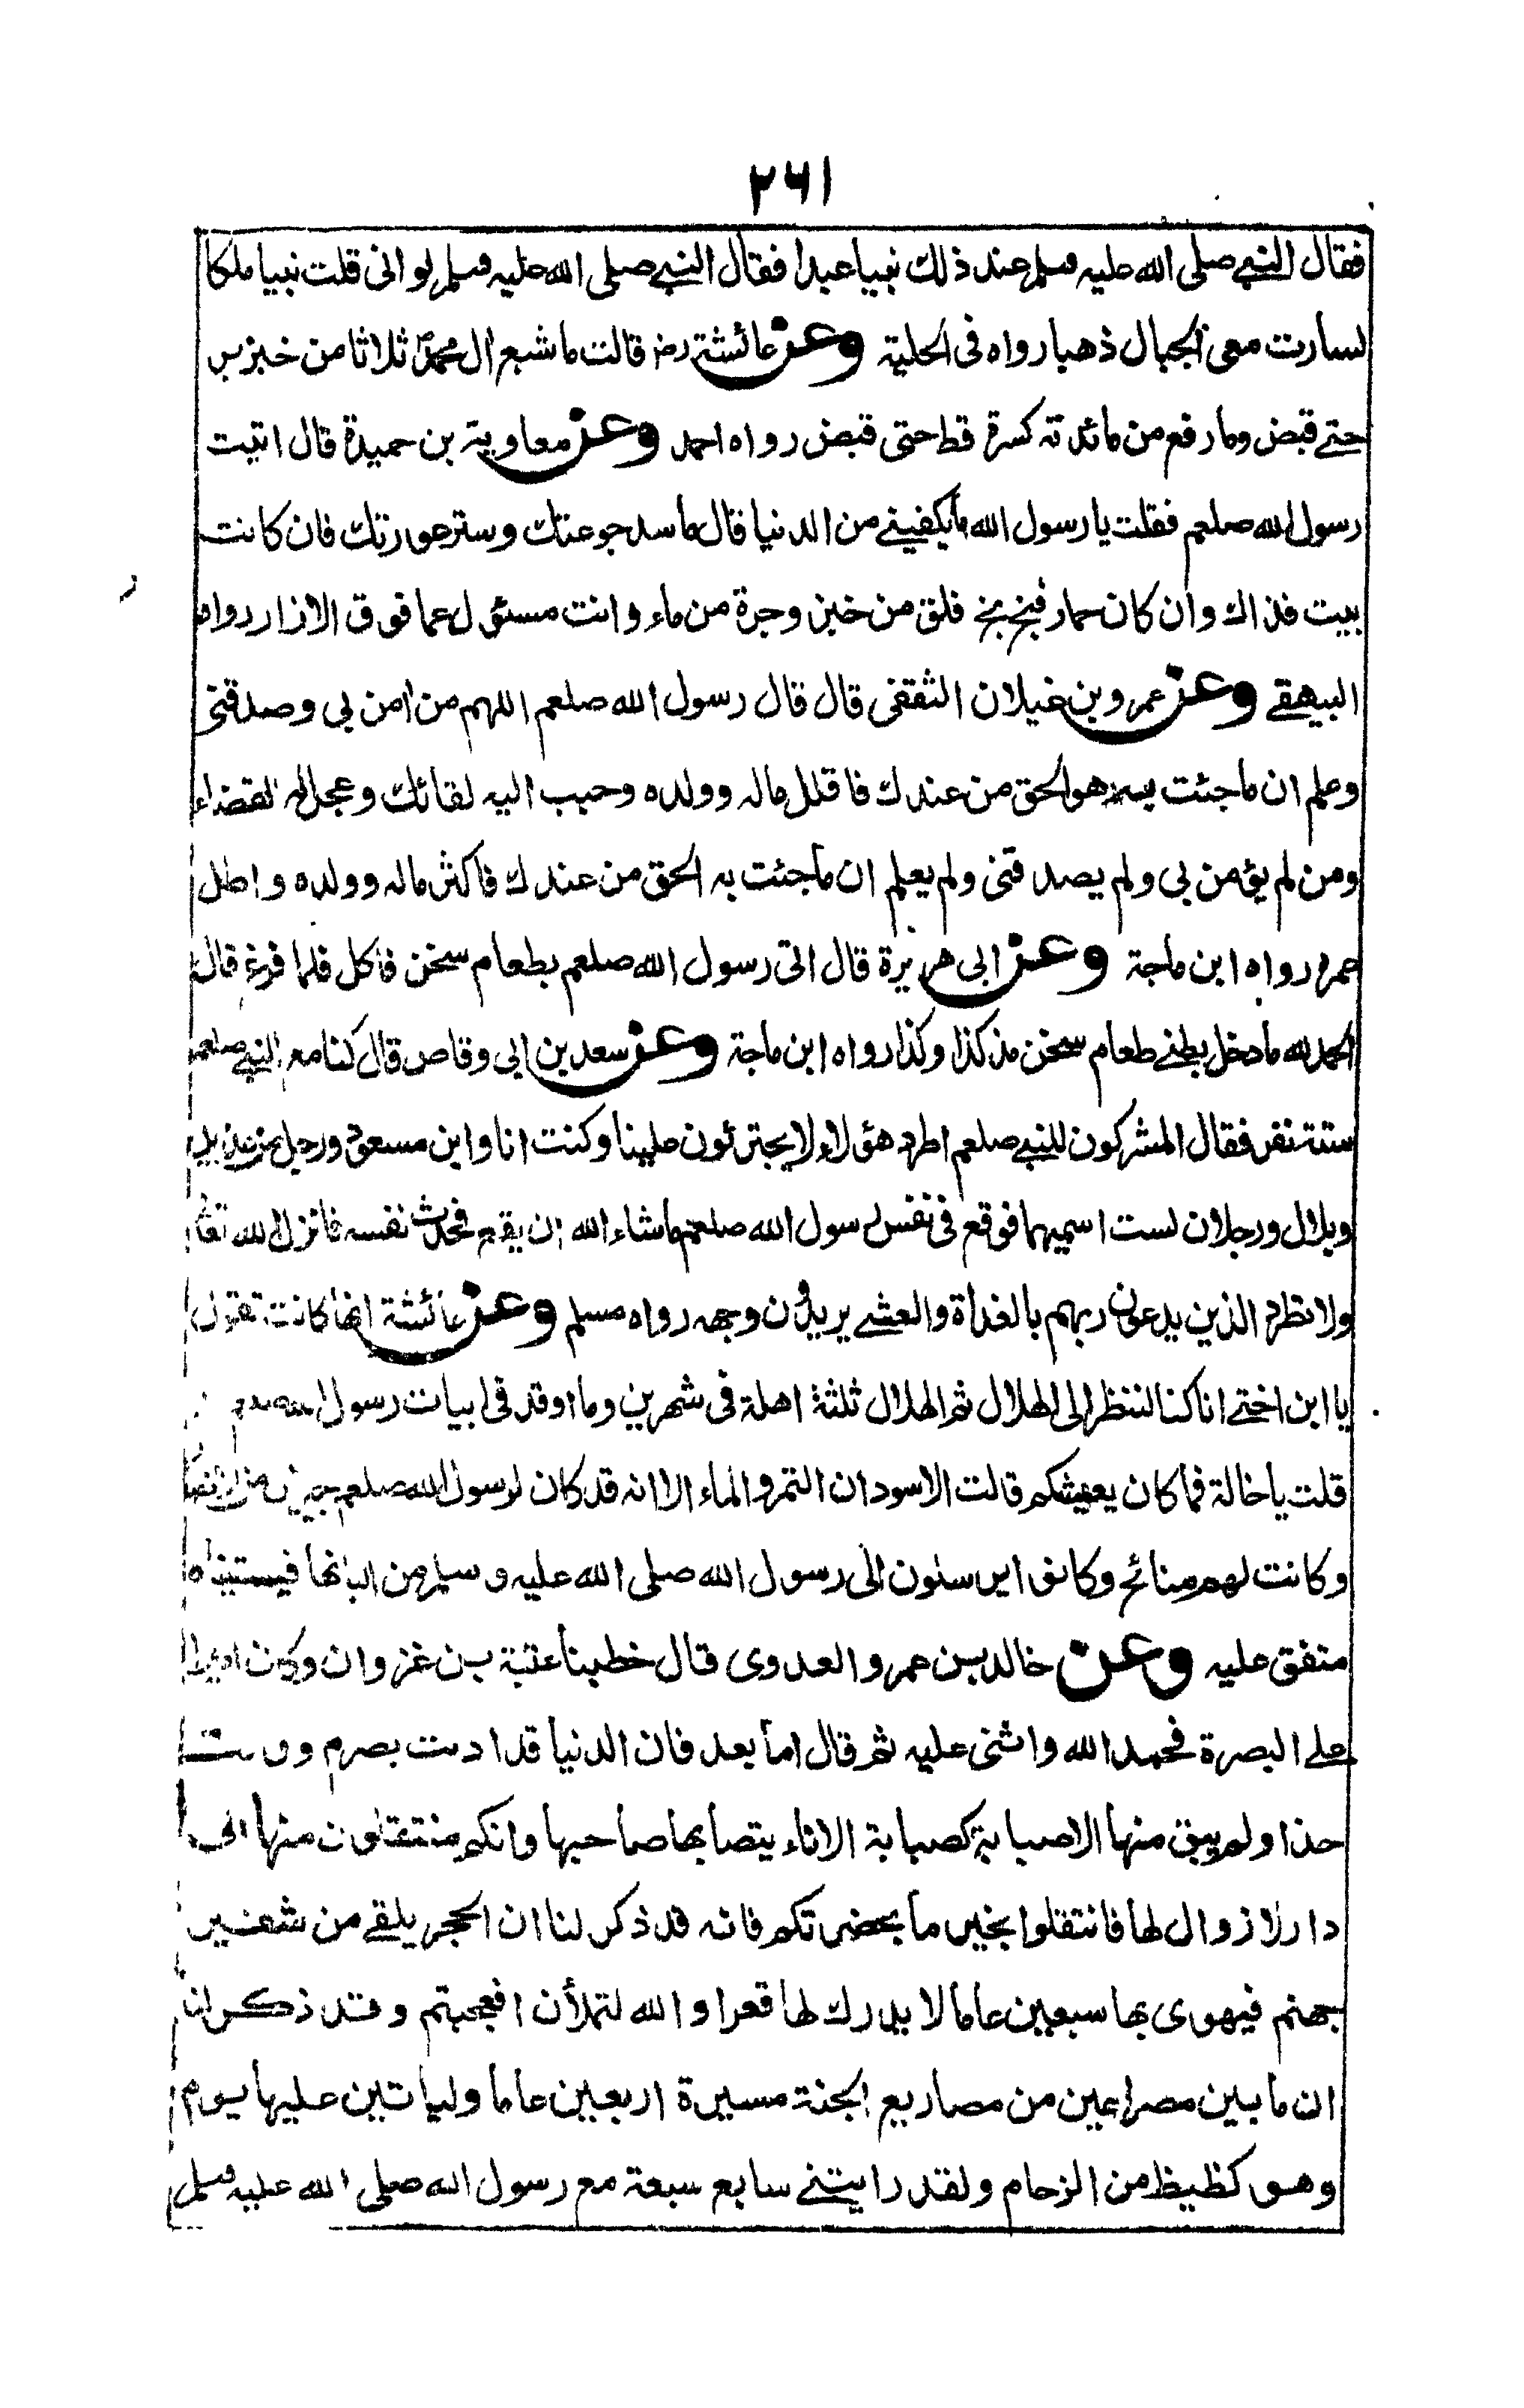 ٢٦١
فقال النبي صلى الله عليه وسلم عند ذلك نبيا عبدا فقال النبي صلى الله عليه وسلم لو انى قلت نبيا ملكا
لسارت معى الجبال ذهبا رواه فى الحلية وعن عائشة رض قالت ما شبع ال محمد ثلاثا من خبز بر
حتے قبض وما رفع من مائدته كسرة قط حتى قبض رواه احمد وعن معاوية بن حميدة قال اتيت
رسول الله صلعم فقلت يا رسول الله ما يكفينے من الدنيا قال ما سد جوعتك وستر عورتك فان كانت
بيت فذاك وان كان حمار فبخ بخ فلق من خبز وجرة من ماء وانت مسئول عما فوق الازار رواه
البيهقے وعن عمرو بن غيلان الثقفى قال قال رسول الله صلعم اللهم من امن بى وصدقنى
وعلم ان ما جئت به هو الحق من عندك فاقلل ماله وولده وحبب اليه لقائك وعجل له القضاء
ومن لم يؤمن بى ولم يصدقنى ولم يعلم ان ما جئت به الحق من عندك فاكثر ماله وولده واطل
عمره رواه ابن ماجة وعن ابى هريرة قال اتى رسول الله صلعم بطعام سخن فاكل فلما فرغ قال
الحمد لله ما دخل بطنے طعام سخن مذ كذا وكذا رواه ابن ماجة وعن سعد بن ابى وقاص قال كنا مع النبي صلعم
ستة نفر فقال المشركون للنبے صلعم اطرد هؤلاء لا يجترئون علينا وكنت انا وابن مسعود ورجل من هذيل
وبلال ورجلان لست اسميهما فوقع فى نفس رسول الله صلعم ما شاء الله ان يقع فحدث نفسه فانزل الله تعالى
ولا تطرد الذين يدعون ربهم بالغداة والعشے يريدون وجهه رواه مسلم وعن عائشة انها كانت تقول
يا ابن اختے انا كنا لننظر الى الهلال ثم الهلال ثلثة اهلة فى شهرين وما اوقد فى ابيات رسول الله صلعم
قلت يا خالة فما كان يعيشكم قالت الاسودان التمر والماء الا انه قد كان لرسول الله صلعم جيران من الانصار
وكانت لهم منائح وكانوا يرسلون الى رسول الله صلى الله عليه وسلم من البانها فيسقيناه
متفق عليه وعن خالد بن عمرو العدوى قال خطبنا عتبة بن غزوان وكان اميرا
على البصرة فحمد الله واثنى عليه ثم قال اما بعد فان الدنيا قد اذنت بصرم وولت
حذا ولم يبق منها الا صبابة كصبابة الاناء يتصابها صاحبها وانكم منتقلون منها الى
دار لا زوال لها فانتقلوا بخير ما بحضرتكم فانه قد ذكر لنا ان الحجر يلقے من شفير
جهنم فيهوى بها سبعين عاما لا يدرك لها قعرا والله لتملأن افعجبتم وقد ذكر لنا
ان ما بين مصراعين من مصاريع الجنة مسيرة اربعين عاما ولياتين عليها يوم
وهو كظيظ من الزحام ولقد رايتنے سابع سبعة مع رسول الله صلى الله عليه وسلم